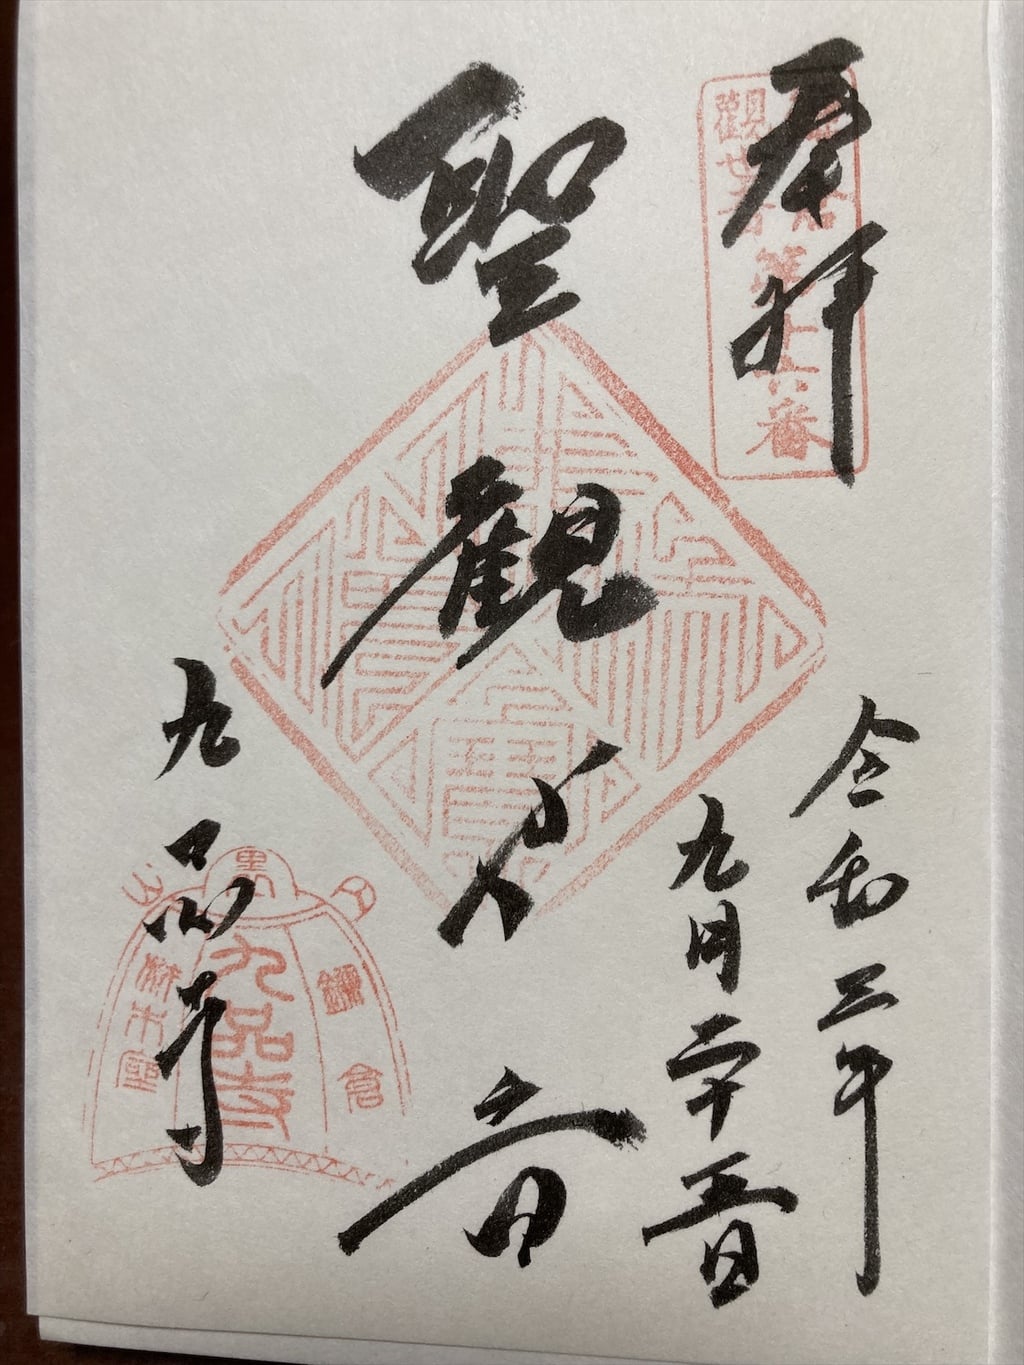 奉拝
鎌倉
觀世音
第十六番
令和三年
九月二十五日
聖觀世音
九品寺
内裏山
鎌倉
九品寺
材木座